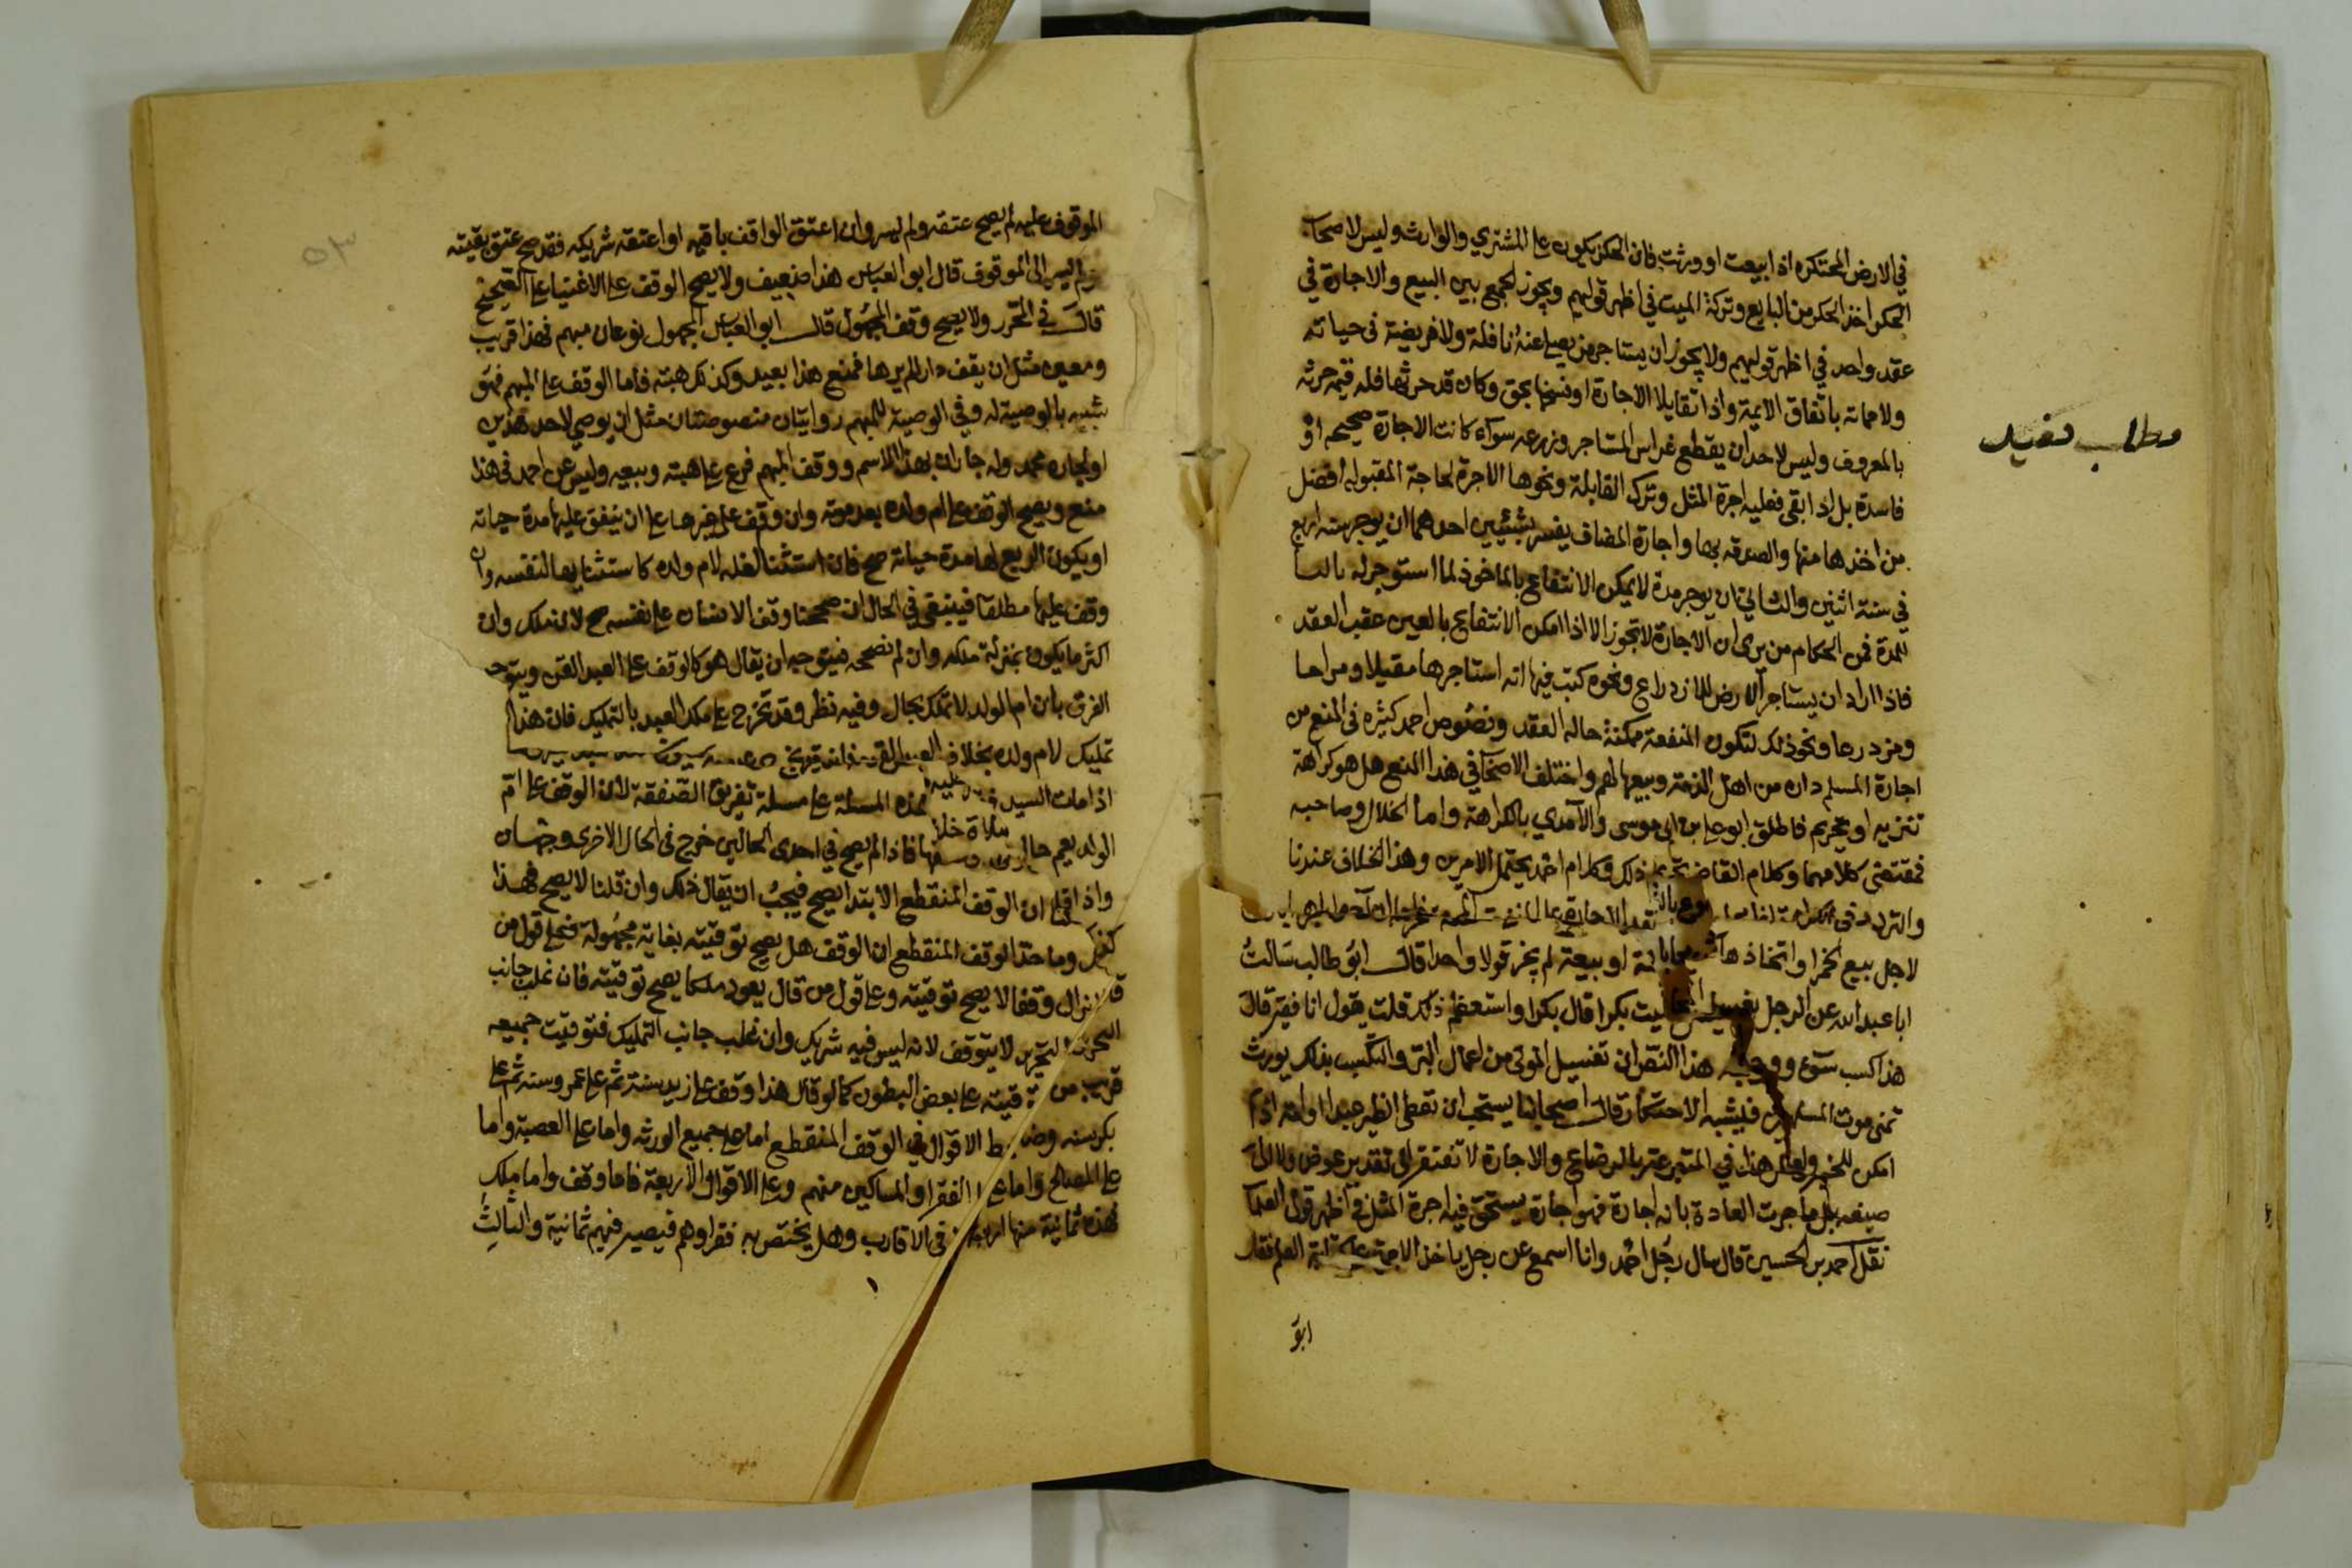 في الارض المحتكره اذا ابيعت او ورثت فان الحكر يكون على المشتري والوارث وليس لاصحاب
الحكر اخذ الحكر من البايع وتركة الميت في اظهر قوليهم ويجوز الجمع بين البيع والاجارة في
عقد واحد في اظهر قوليهم ولا يجوز ان يستاجر من يصلي عنه نافلة ولا فريضة في حياته
ولا مماته باتفاق الايمة واذا تقايلا الاجارة او فسخاها بحق وكان قد حرثها فله قيمة حرثه
بالمعروف وليس لاحد ان يقطع غراس المستاجر وزرعه سوآء كانت الاجارة صحيحه او
فاسدة بل اذا بقي فعليه اجرة المثل وترك القابلة ونحوها الاجرة لحاجة المقبوله افضل
من اخذها منها والصدقه بها واجارة المضاف يفسر بشيئين احدهما ان يوجر سنه اربع
في سنة اثنين والثاني ان يوجر مدة لا يمكن الانتفاع بالماخوذ لما استوجر له
المدة فمن الحكام من يرى ان الاجارة لا تجوز الا اذا امكن الانتفاع بالعين عقب العقد
فاذا اراد ان يستاجر الارض للازدراع ونحوه كتب فيها انه استاجرها مقيلا ومراحا
ومزدرعا ونحو ذلك لتكون المنفعة ممكنة حاله العقد ونصوص احمد كثيره في المنع من
اجارة المسلم داره من اهل الذمة وبيعها لهم واختلف الاصحاب في هذا المنع هل هو كراهة
تنزيه او تحريم فاطلق ابو علي بن ابي موسى والآمدي بالكراهة واما الخلال وصاحبه
فمقتضى كلامهما وكلام القاضي تحريم ذلك وكلام احمد يحتمل الامرين وهذا الخلاف عندنا
والتردد في الكراهة
لاجل بيع الخمر او اتخاذها او بيعة لم يجز قولا واحدا قال ابو طالب سالت
ابا عبد الله عن الرجل يغسل الميت بكرا قال بكرا واستعظم ذلك قلت يقول انا فقير قال
هذا كسب سوء ووجه هذا النص ان تغسيل الموتى من اعمال البر والتكسب بذلك يورث
تمني موت المسلمين فيشبه الاحتكار قال اصحابنا يستحب ان تعطى الظير عبدا او امة اذا
امكن للخبر ولعل هذا في المتبرعة بالرضاع والاجارة لا تفتقر الى تقدير عوض ولا الى
صيغه بل ما جرت العادة بانه اجارة فهو اجارة يستحق فيه اجرة المثل في اظهر قولي العلما
نقل احمد بن الحسين قال سال رجل احمد وانا اسمع عن رجل ياخذ الاجرة على كتابة العلم فقال
ابو
مطلب مفيد
٥٣
الموقوف عليه لم يصح عتقه ولم يسر وان اعتق الواقف باقيه او اعتقه شريكه فقد صح عتق بقيته
ولم يسر الى الموقوف قال ابو العباس هذا ضعيف ولا يصح الوقف على الاغنيا على الصحيح
قال في المحرر ولا يصح وقف المجهول قال ابو العباس المجهول نوعان مبهم فهذا قريب
ومعين مثل ان يقف دارا لم يرها فمنع هذا بعيد وكذلك هبته فاما الوقف على المبهم فهو
شبيه بالوصية له وفي الوصية للمبهم روايتان منصوصتان مثل ان يوصي لاحد هذين
او لجاره محمد وله جاران بهذا الاسم ووقف المبهم فرع على هبته وبيعه وليس عن احمد في هذا
منع ويصح الوقف على ام ولده بعد موته وان وقف على غيرها على ان ينفق عليها مدة حياته
او يكون الريع لها مدة حياته صح فان استثنا الغلة لام ولده كاستثنايها لنفسه وان
وقف عليها مطلقا فينبغي في الحال ان صححنا وقف الانسان على نفسه صح لان ملك
اكثر ما يكون بمنزلة ملكه وان لم نصححه فيتوجه ان يقال هو كالوقف على العبد القن ويتوجه
الفرق بان ام الولد لا تملك بحال وفيه نظر وقد تخرج على ملك العبد بالتمليك فان هذا
تمليك لام ولده بخلاف العبد القن فانه قد يخرج
اذا مات السيد هذه المسلة على مسلة تفريق الصفقة لان الوقف على ام
الولد يعم حال فاذا لم يصح في احدى الحالين خرج في الحال الاخرى وجهان
واذا قلنا ان الوقف المنقطع الابتدا يصح فيجب ان يقال ذلك وان قلنا لا يصح فهذا
كذلك وماخذ الوقف المنقطع ان الوقف هل يصح توقيته بغاية مجهولة فعلى قول من
قال لا يزال وقفا لا يصح توقيته وعلى قول من قال يعود ملكا يصح توقيته فان غلب جانب
التحريم لا يتوقف لانه ليس فيه شريك وان غلب جانب التمليك فتوقيت جميعه
قريب من توقيته على بعض البطون كما لو قال هذا وقف على زيد سنة ثم على عمرو سنة ثم على
بكر سنه وضابط الاقوال في الوقف المنقطع اما على جميع الورثه واما على العصبة واما
على المصالح واما على الفقرا والمساكين منهم وعلى الاقوال الاربعة فاما وقف واما ملك
فهذه ثمانية منها اربعة في الاقارب وهل يختص به فقراوهم فيصير فيهم ثمانية والثالث